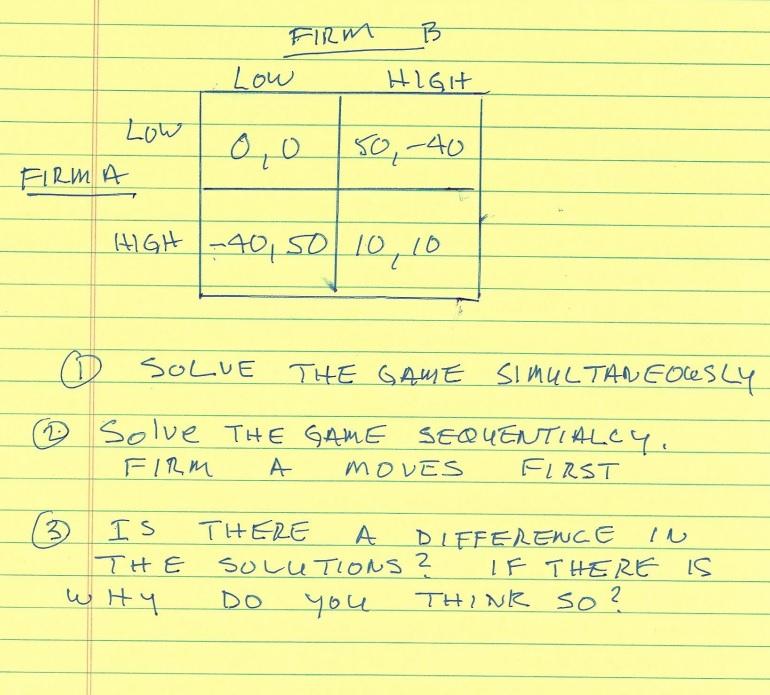 FIRM B
LOW HIGH
LOW 0,0 50,-40
FIRM A
HIGH -40,50 10,10
① SOLVE THE GAME SIMULTANEOUSLY
② Solve THE GAME SEQUENTIALLY.
FIRM A MOVES FIRST
③ IS THERE A DIFFERENCE IN
THE SOLUTIONS? IF THERE IS
WHY DO YOU THINK SO?